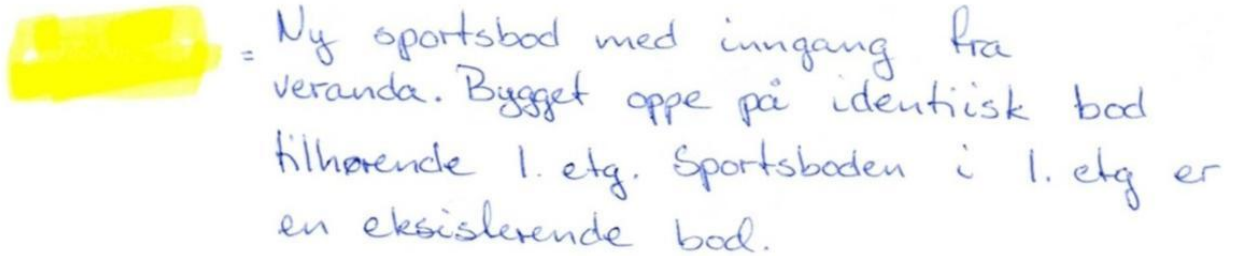 = Ny sportsbod med inngang fra
veranda. Bygget oppe på identiisk bod
tilhørende 1. etg. Sportsboden i 1. etg er
en eksisterende bod.